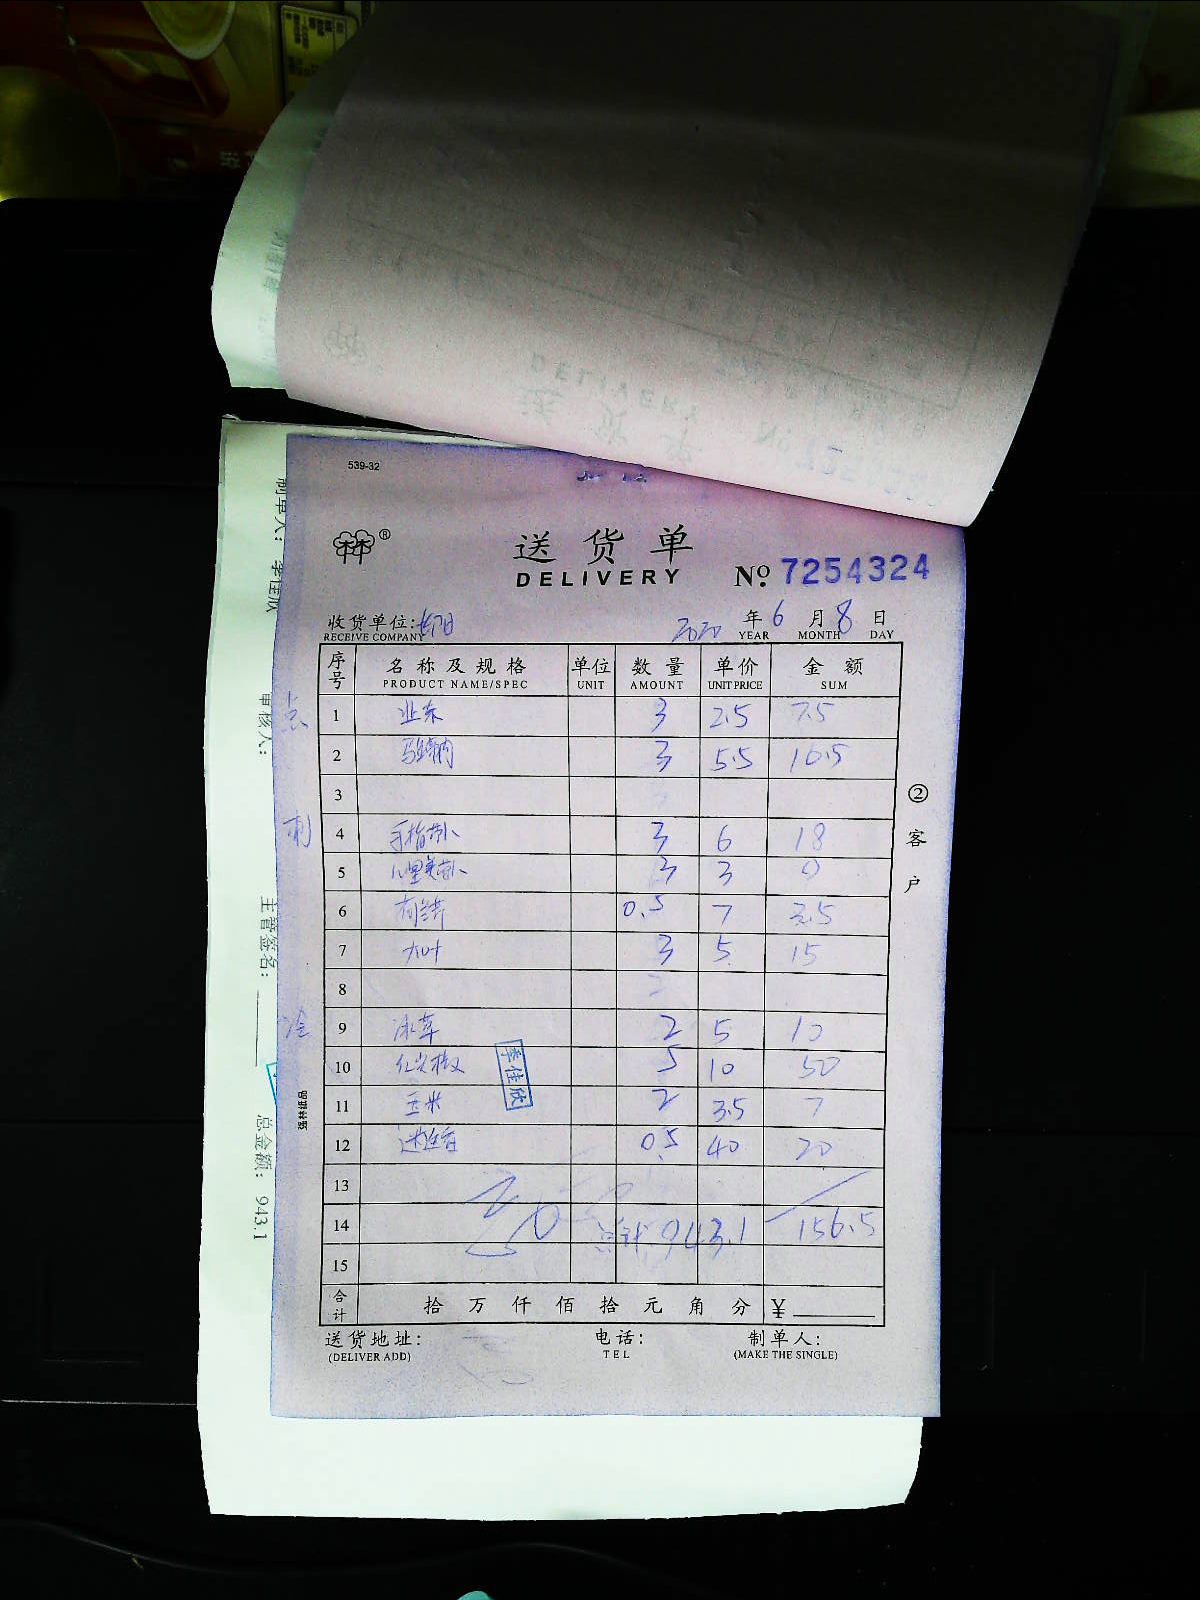 539-32
送货单
DELIVERY
No. 7254324
收货单位:
RECEIVE COMPANY
2020 年 6 月 8 日
YEAR MONTH DAY
序号 名称及规格 单位 数量 单价 金额
PRODUCT NAME/SPEC UNIT AMOUNT UNIT PRICE SUM
点 1 3 2.5 7.5
2 3 5.5 16.5
3
4 手指萝卜 3 6 18
5 心里美萝卜 3 3 9
6 0.5 7 3.5
7 大叶 3 5 15
8
9 冰草 2 5 10
10 红尖椒 5 10 50
11 玉米 2 3.5 7
12 迷迭香 0.5 40 20
13
14 总计 943.1 156.5
15
李佳欣
合计 拾 万 仟 佰 拾 元 角 分 ¥
送货地址: 电话: 制单人:
(DELIVER ADD) TEL (MAKE THE SINGLE)
② 客户
强林纸品
制单人: 李佳欣
审核人:
主管签名:
总金额: 943.1